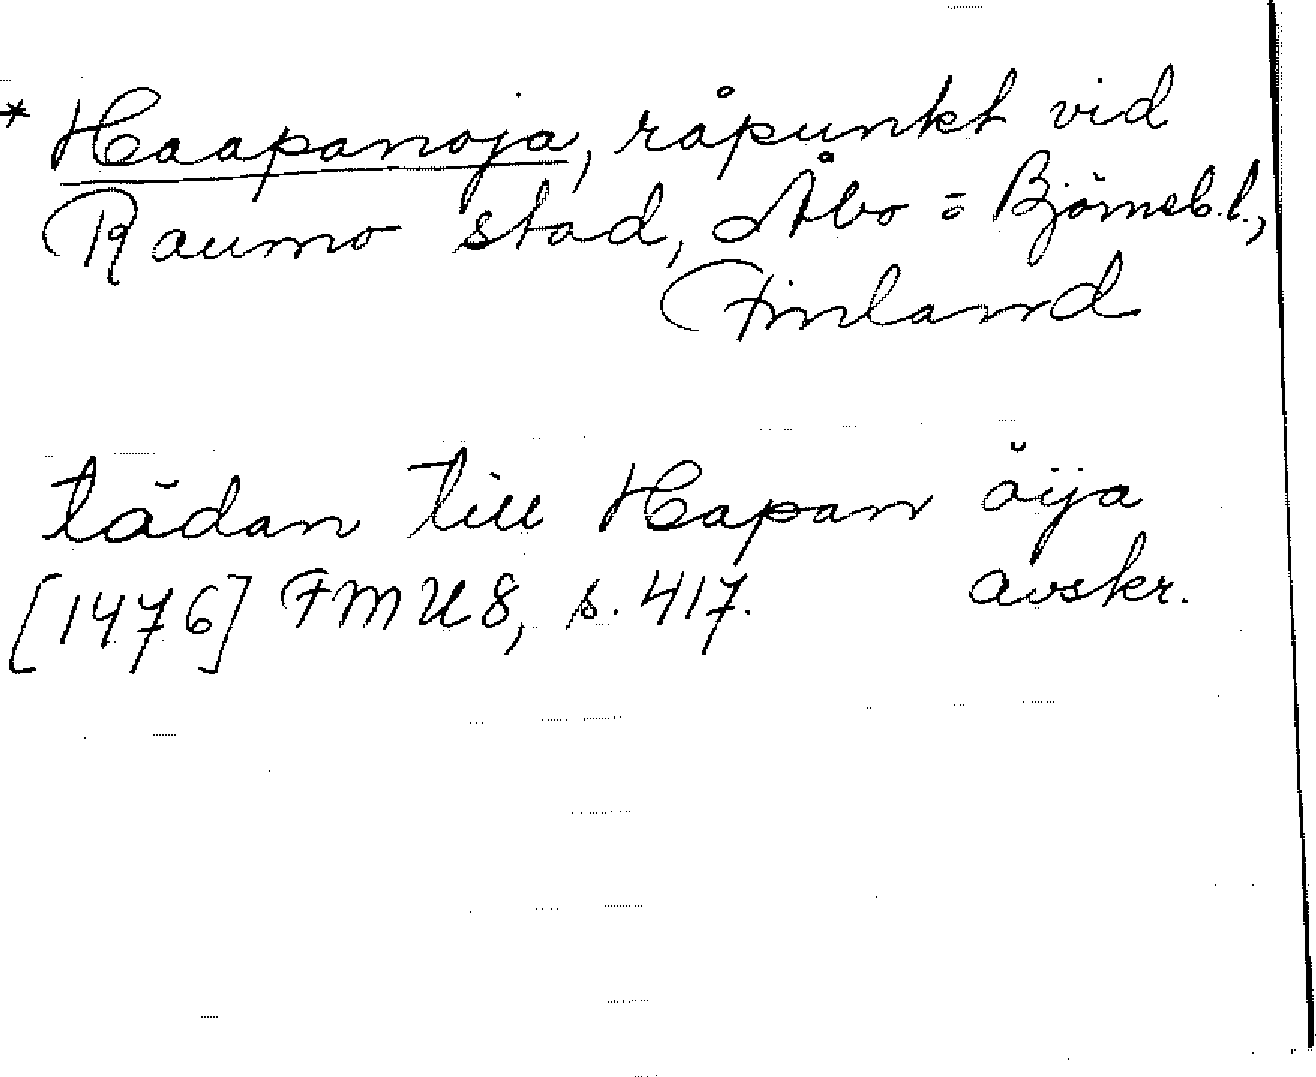 * Haapanoja, råpunkt vid
Raumo stad, Åbo = Björneb.l.,
Finland
tädan till Hapan öija
[1476] FMU 8, s. 417. avskr.